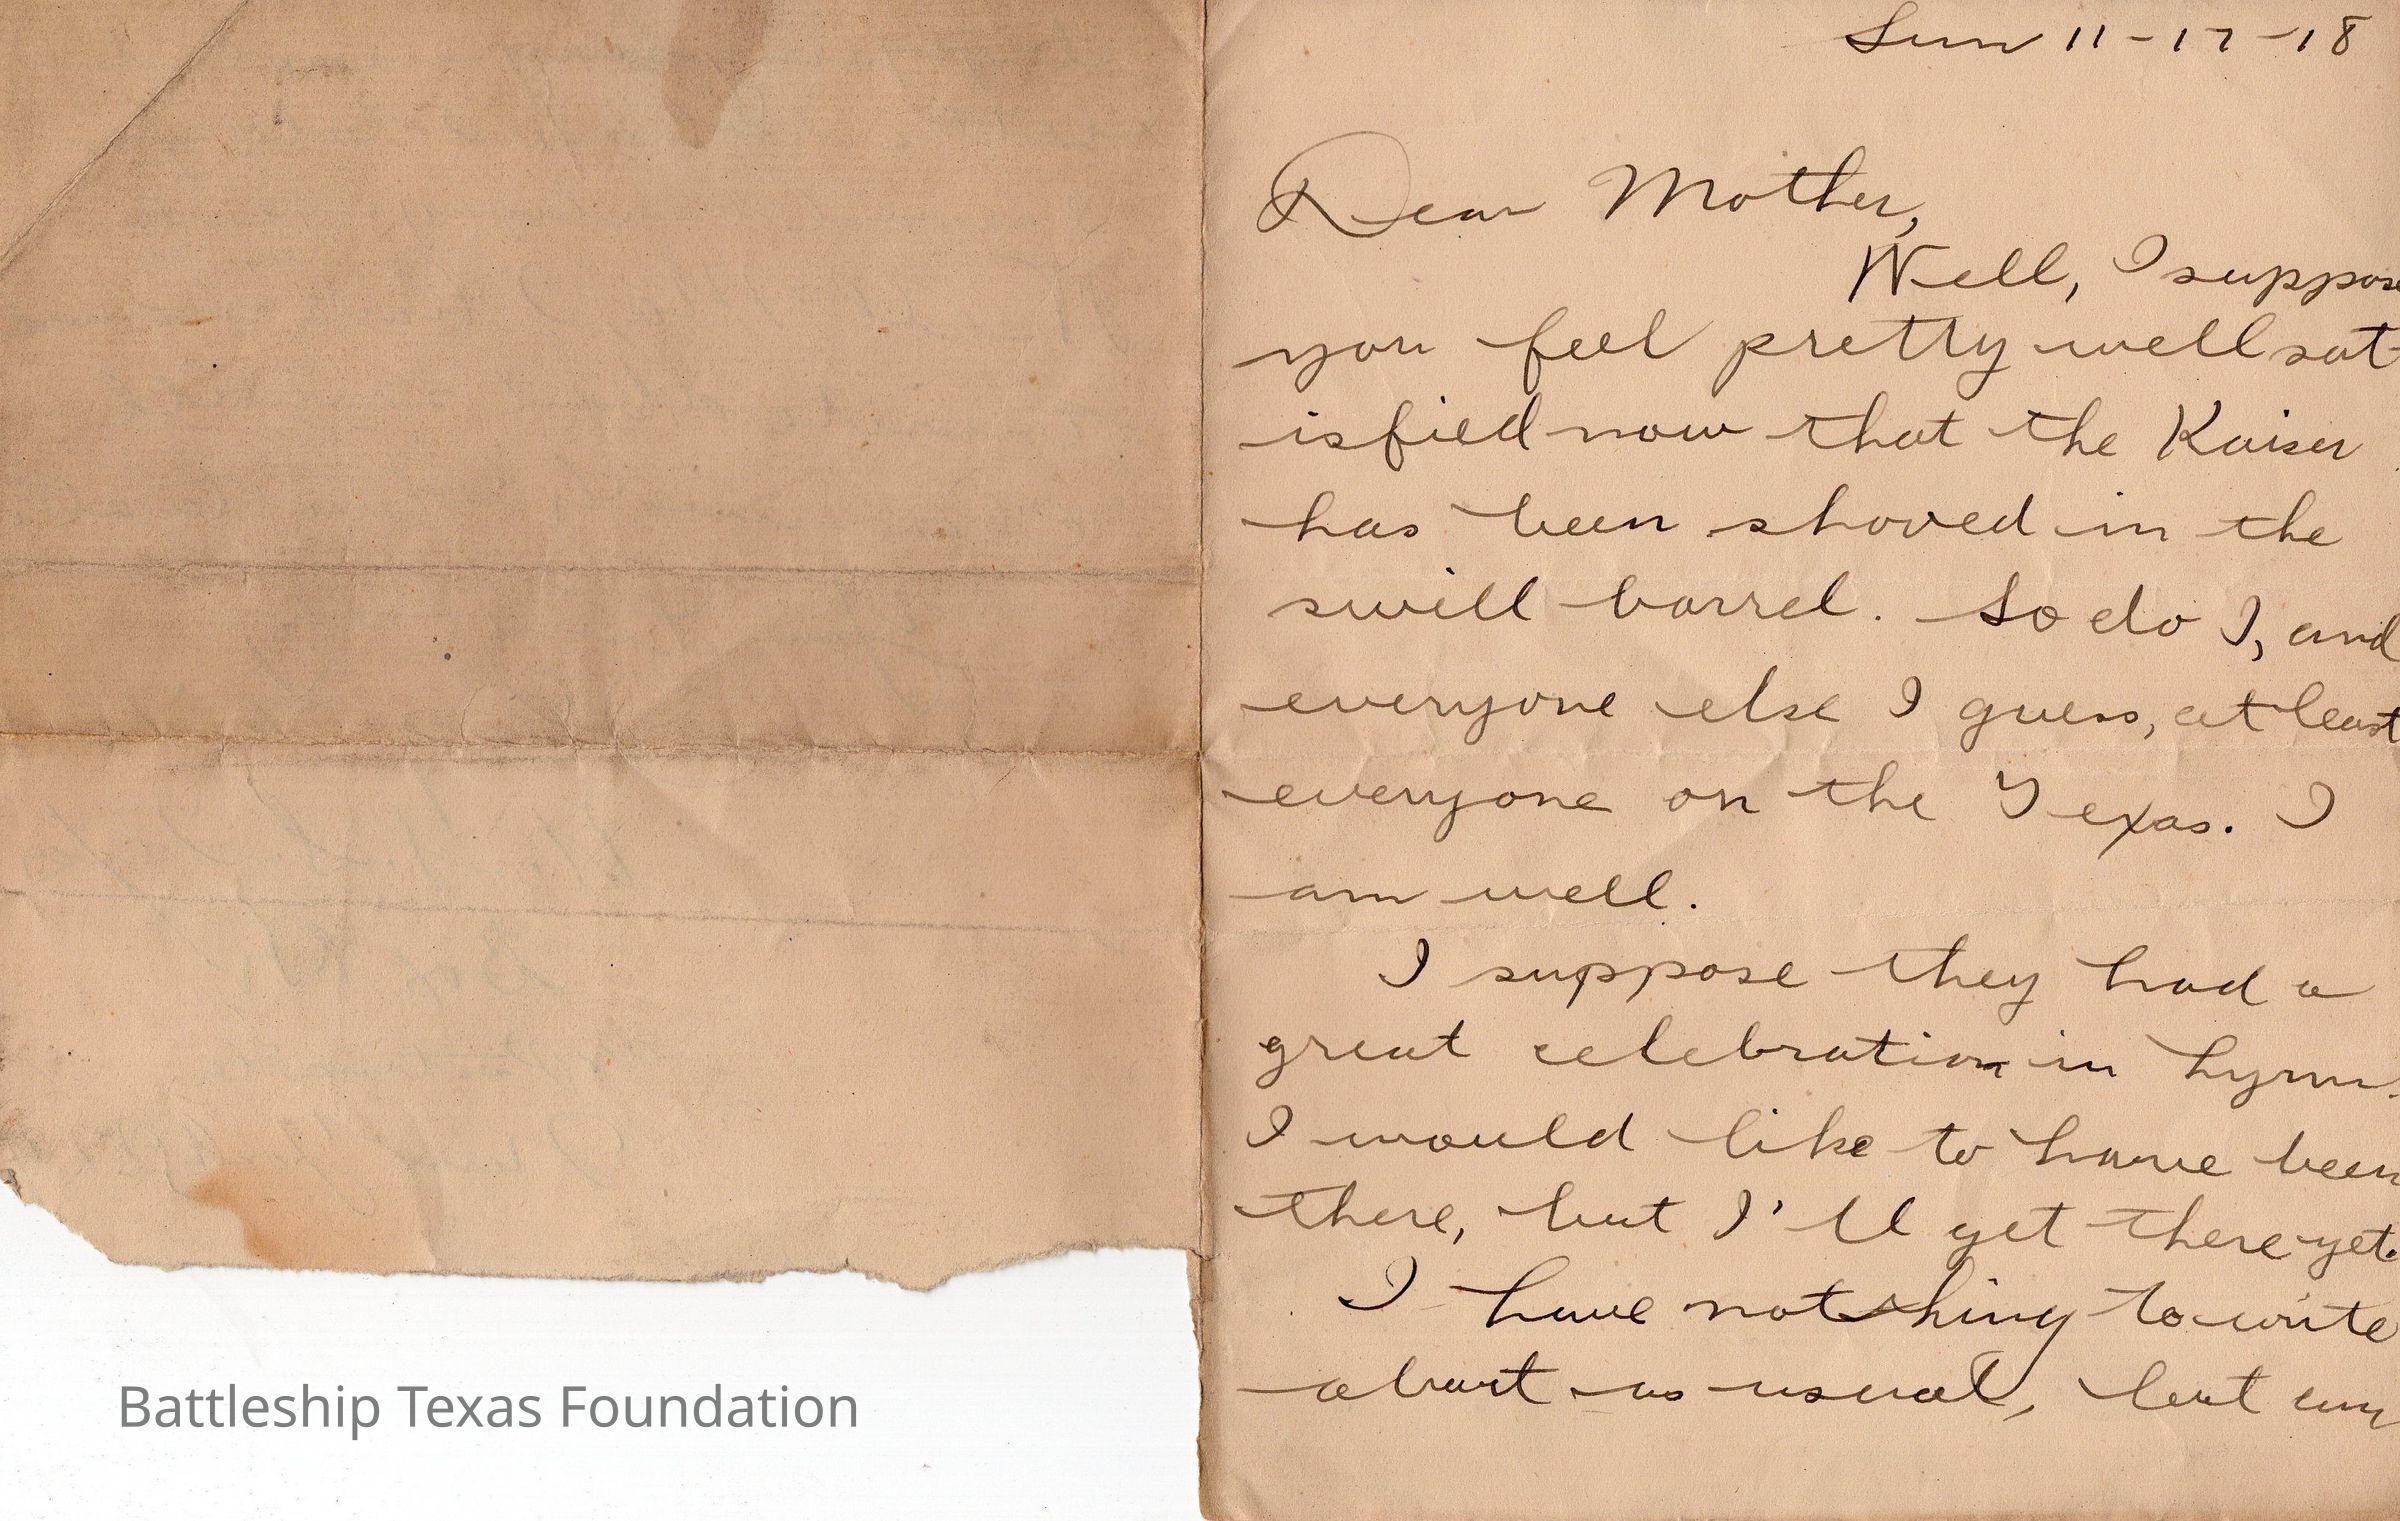 Sun 11-17-18
Dear Mother,
Well, I suppose
you feel pretty well sat-
isfied now that the Kaiser
has been shoved in the
swill barrel. So do I, and
everyone else I guess, at least
everyone on the Texas. I
am well.
I suppose they had a
great celebration in Lynn.
I would like to have been
there, but I'll get there yet.
I have nothing to write
about as usual, but am
Battleship Texas Foundation